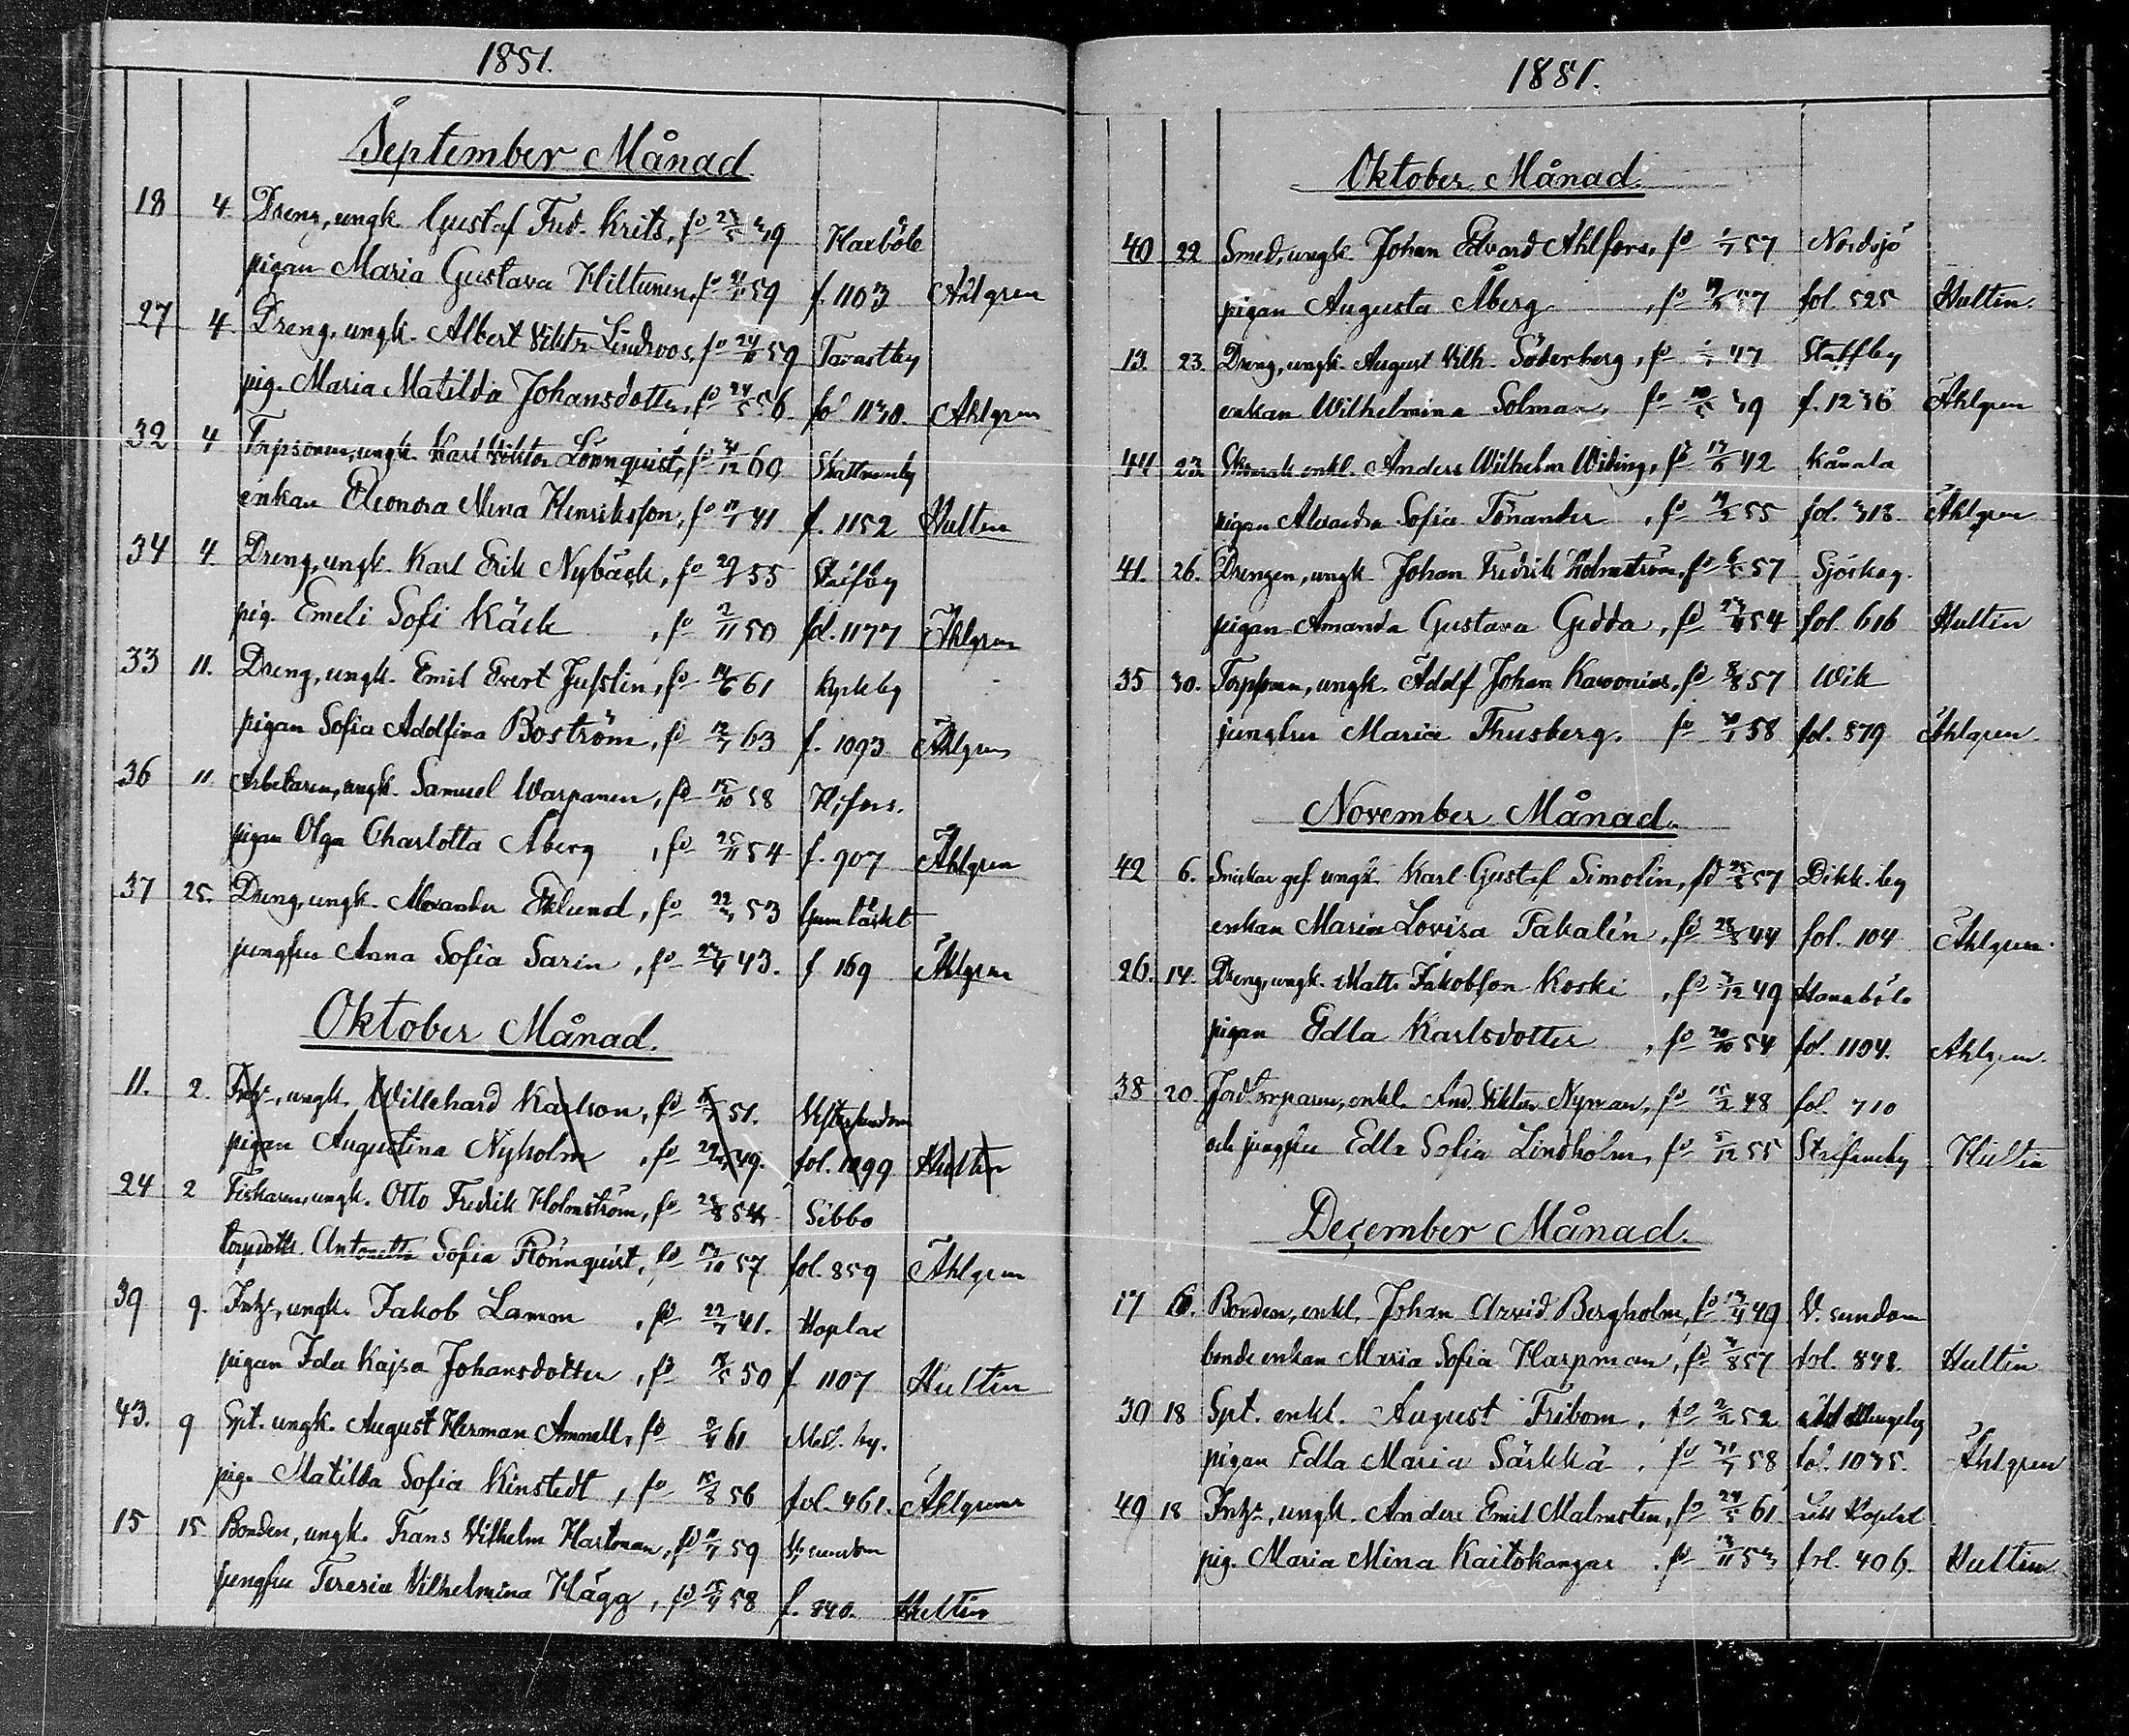 1881.
September Månad
18 4. Dreng, ungk. Gustaf Fred. Krits, fö 39 Haxböle
pigan Maria Gustava Hiltunen, fö 59 f. 1103 Ahlgren
27 4 Dreng, ungk. Albert Viktor Lindroos, fö 24/11 59 Tavastby
pig. Maria Matilda Johansdotter, fö 24/5 56. fo 1130. Ahlgren
32 4 Torpsonen, ungk. Karl Viktor Lönnquist, fö 60 Skattmansby
enkan Eleonora Mina Henriksson, fö 41 f. 1152 Hultin
34 4. Dreng, ungk. Karl Erik Nybäck, fö 29/7 55
pig. Emeli Sofi Käck, fö 2/11 50 fol. 1177 Ahlgren
33 11. Dreng, ungk. Emil Evert Jusslin, fö 14/6 61 Kyrkby
pigan Sofia Adolfina Boström, fö 12/7 63 f. 1093 Ahlgren
36 11. Arbetaren, ungk. Samuel Warpanen, fö 15/10 58 H.fors.
pigan Olga Charlotta Åberg, fö 25/11 54 f. 907 Ahlgren
37 25. Dreng, ungk. Alexander Eklund, fö 22/3 53 Gumtäckt
jungfru Anna Sofia Sarin, fö 43. f 169 Ahlgren
Oktober Månad.
11. 2. Inhs, ungk. Willehard Karlson, fö 51. Westersundom
pigan Augustina Nyholm, fö 49. fol. 1099 Hultin
24 2 Fiskaren, ungk. Otto Fredrik Holmström, fö 54 Sibbo
torpdottr. Antonetta Sofia Rönnquist, fö 57 fol. 859 Ahlgren
39 9. Inhs, ungk. Jakob Lamm, fö 22/7 41. Hoplax
pigan Ida Kajsa Johansdotter, fö 18/5 50 f 1107 Hultin
43. 9 Spt. ungk. August Herman Ammell, fö 61 Mell. by.
pig. Matilda Sofia Kinstedt, fö 15/8 56 fol. 461. Ahlgren
15 15 Bonden, ungk. Frans Vilhelm Hartman, fö 59 V. sundom
jungfru Teresia Vilhelmina Hägg, fö 58 f. 840. Hultin
1881.
Oktober Månad.
40 22 Smed, ungk. Johan Edvard Ahlfors, fö 1/7 57 Nordsjö
pigan Augusta Åberg, fö 57 fol. 525 Hultin.
13. 23. Dreng, ungk. August Vilh. Söderberg, fö 47 Staffby
enkan Wilhelmina Solman, fö 39 f. 1236 Ahlgren
44 23. enkl. Anders Wilhelm Widing, fö 42 Kånala
pigan Alexandra Sofia Törnander, fö 55 fol. 318. Ahlgren
41. 26. Drengen, ungk. Johan Fredrik Holmström, fö 57 Sjöskog.
pigan Amanda Gustava Gedda, fö 54 fol. 616 Hultin
35 30. Torpsonen, ungk. Adolf Johan Karvonius, fö 8/8 57 Wik
jungfru Maria Thusberg. fö 58 fol. 879 Ahlgren.
November Månad.
42 6. Snickar ges. ungk. Karl Gustaf Simolin, fö 57 Dikk. by
enkan Maria Lovisa Pakalén, fö 28/8 44 fol. 104 Ahlgren.
26. 14. Dreng, ungk. Matts Jakobsson Koski, fö 49 Hanaböle
pigan Edla Karlsdotter, fö 20/10 54 fol. 1104. Ahlgren.
38 20. Jordtorparen, enkl. And. Viktor Nyman, fö 15/2 48 fol. 710
och jungfru Edla Sofia Lindholm, fö 5/12 55 Hultin
December Månad.
17 6. Bonden, enkl. Johan Arvid Bergholm, fö 49 V. sundom
bonde enkan Maria Sofia Harpman, fö 3/8 57 fol. 848. Hultin
30 18 Spt. enkl. August Fribom, fö 2/2 52
pigan Edla Maria Särkkä, fö 58 fol. 1035. Ahlgren
49 18 Inhs, ungk. Anders Emil Malmsten, fö 24/5 61 Lill Hoplax
pig. Maria Mina Kaitokangas, fö 13/11 53 fol. 406. Hultin